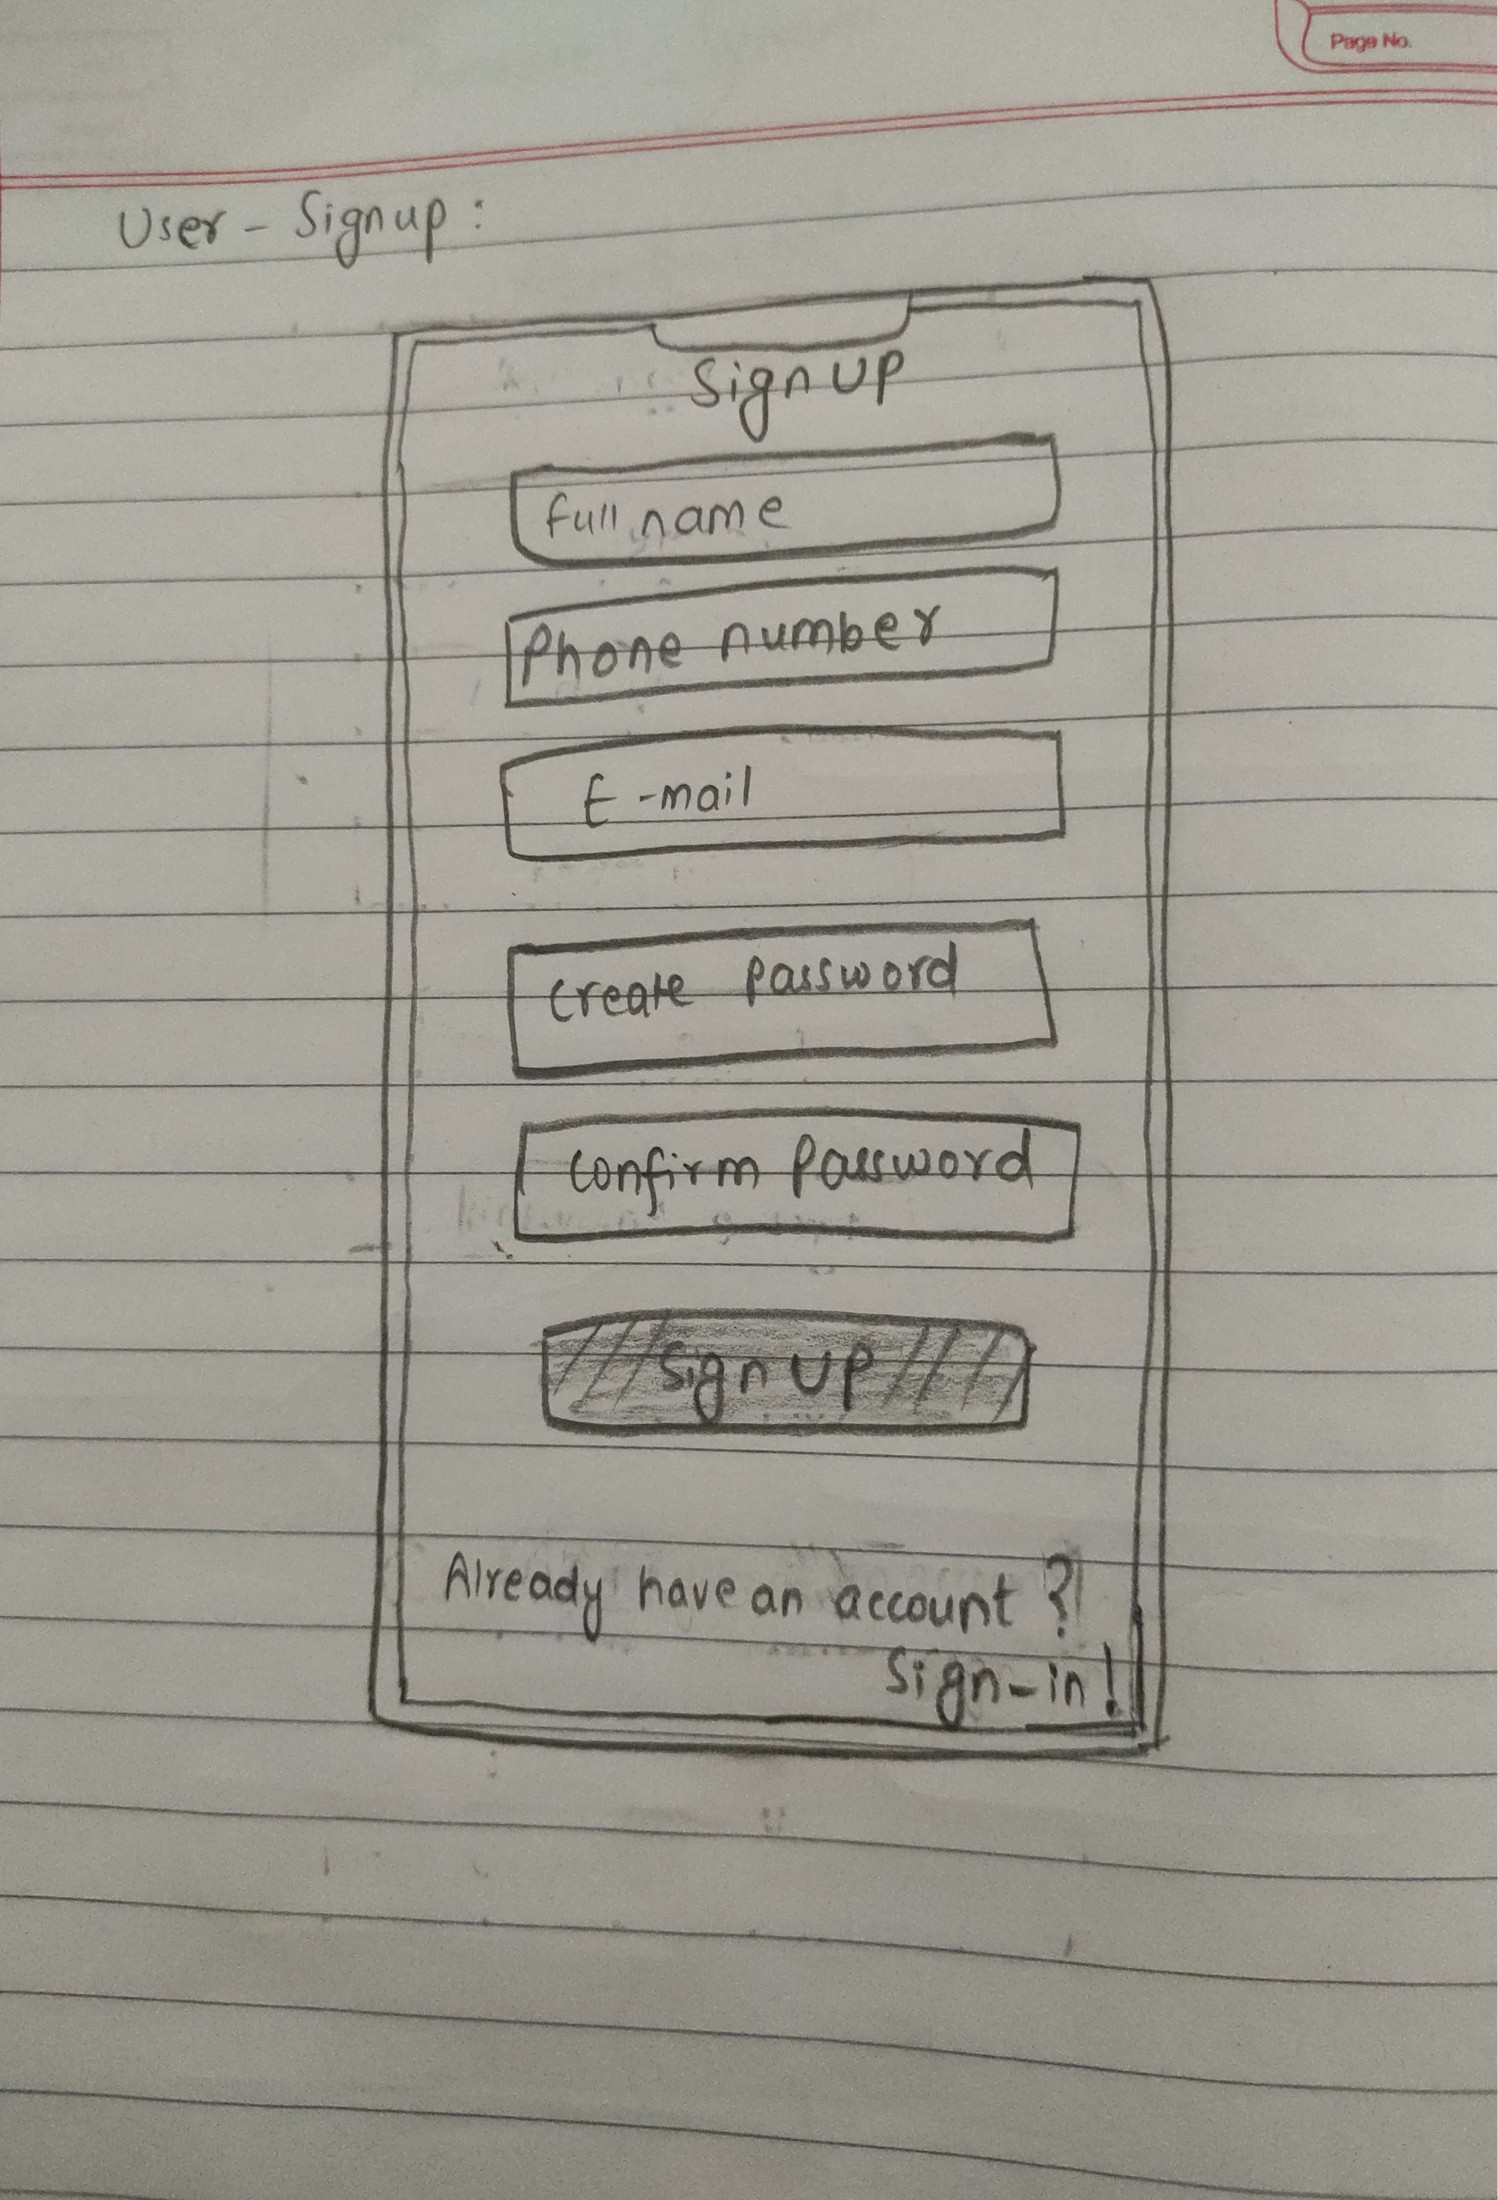 Page No.
User - Signup :
Sign UP
Full name
Phone number
E-mail
Create Password
Confirm Password
Sign UP
Already have an account ?
Sign-in!